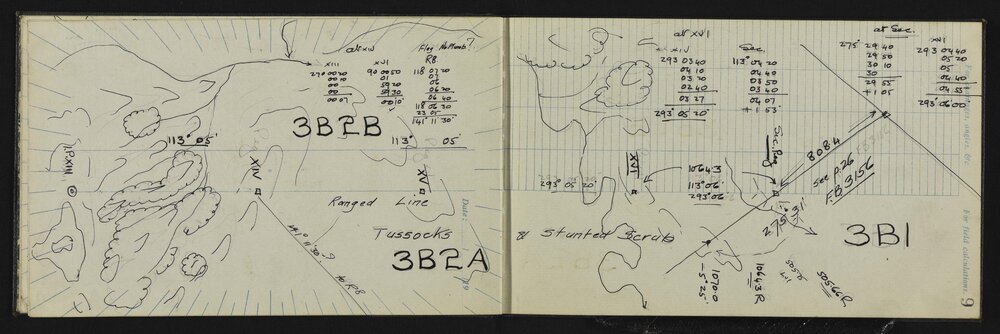 at XIV
XIII
270 00 20
00
XVI
90 00 50
01
59 20
59 30
00 10
Flag No Plumb?
R8
118 07 20
07
06
06 20
06 40
118 06 30
23 05
141° 11' 30"
3B2B
113° 05'
113° 05'
IP XIII
XIV
XV
Ranged Line
Tussocks
3B2A
141° 11' 30"
to R8
Date:
19
at XVI
XIV
293 03 40
04 10
03 30
02 40
03 27
293° 05' 20"
Sec.
113° 04 20
04 40
03 50
03 40
04 07
+1 53
at Sec.
275° 29 40
29 50
30 10
30
29 55
+1 05
XVI
293 04 40
05 20
05
04 40
04 55
293° 06' 00"
XVI
293° 05' 20"
10643
113° 06'
293° 06'
Sec. Peg
8084
See p. 26
F.B 3156
275° 31'
& Stunted Scrub
3B1
10700
-5° 25'
10643 R
50566R
For field calculations.
9